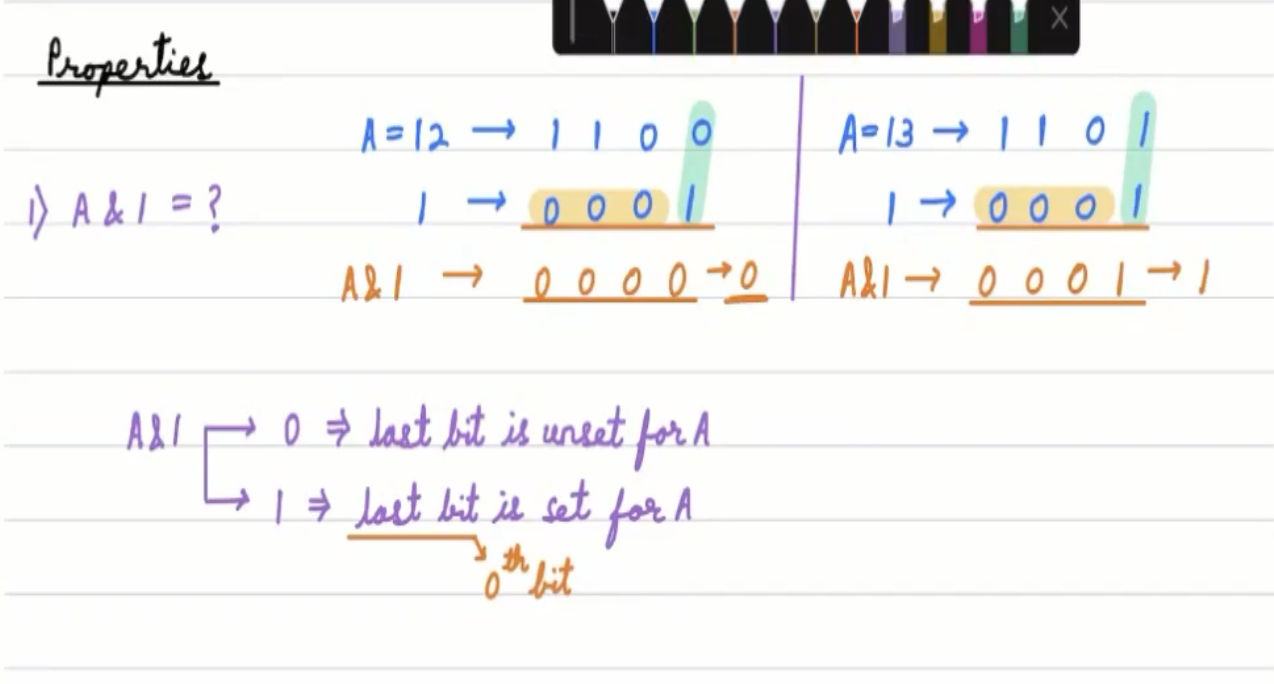 Properties
A = 12 → 1 1 0 0
A = 13 → 1 1 0 1
1) A & 1 = ?
1 → 0 0 0 1
1 → 0 0 0 1
A & 1 → 0 0 0 0 → 0
A & 1 → 0 0 0 1 → 1
A & 1 → 0 ⇒ last bit is unset for A
→ 1 ⇒ last bit is set for A
0th bit